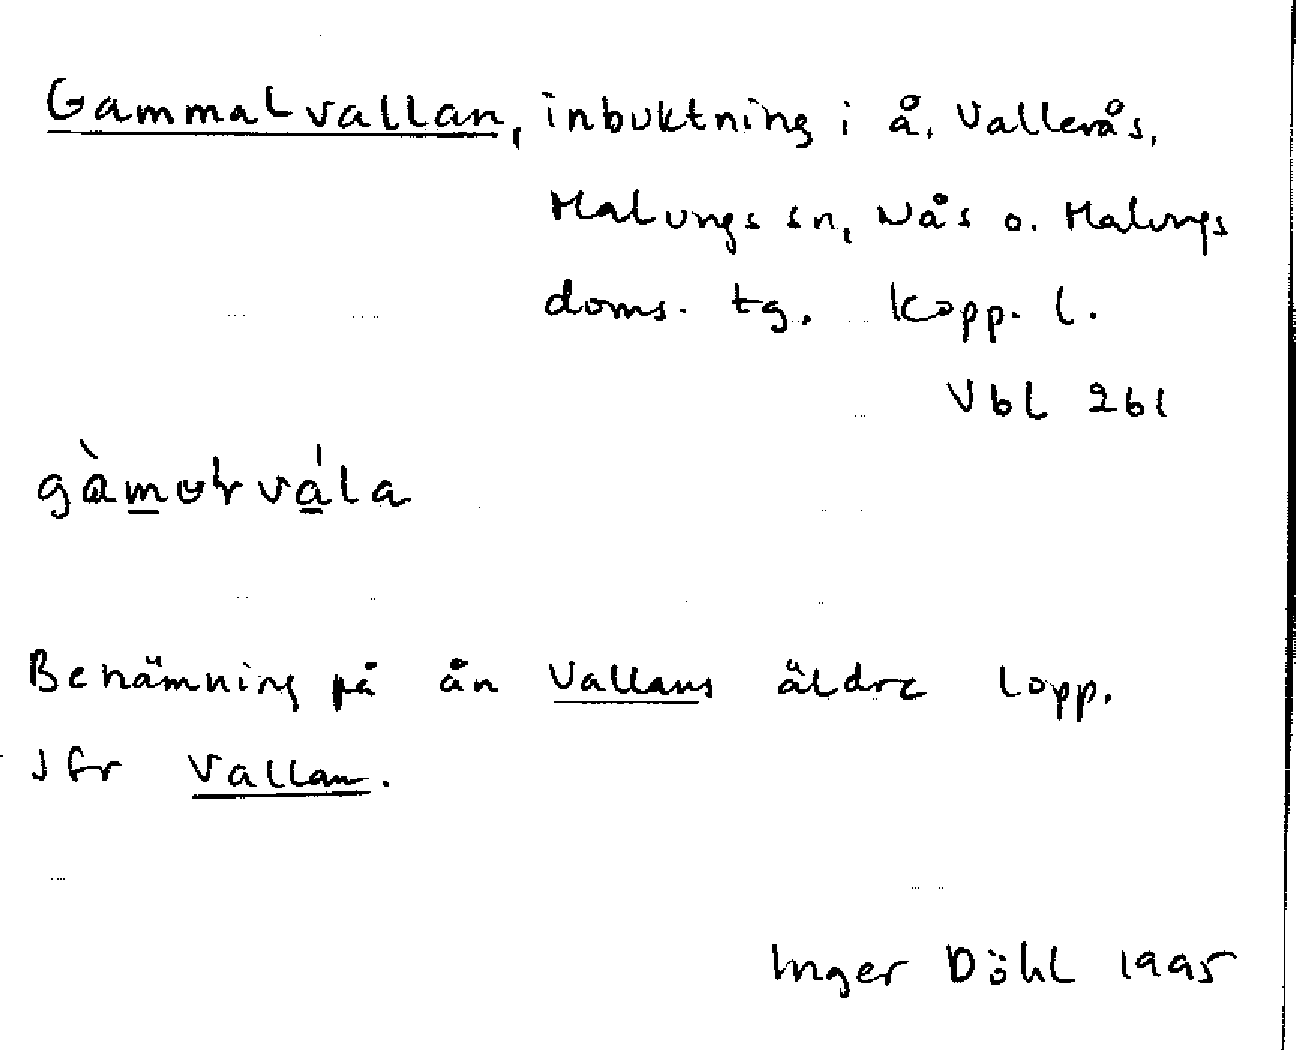 Gammalvallan, inbuktning i å, Vallerås,
Malungs sn, Nås o. Malungs
doms. tg. Kopp. l.
Vbl 2bl
Benämning på ån Vallans äldre lopp.
Jfr Vallan.
Inger Döhl 1995